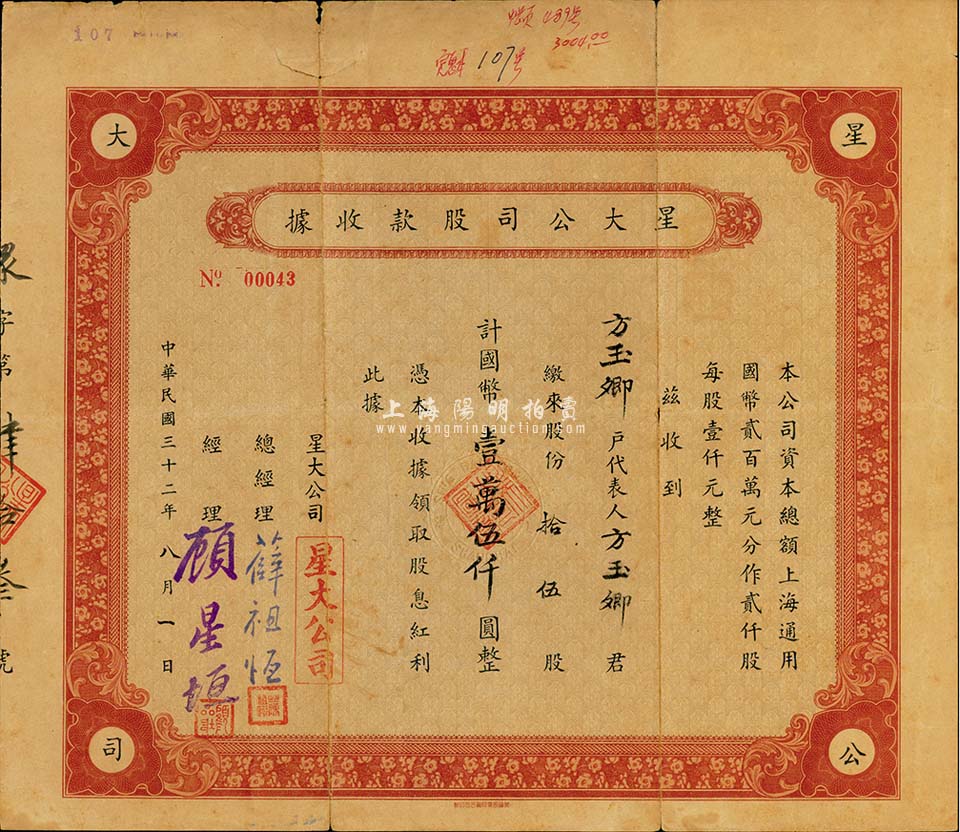 107
439号
3004.00
107号
星
大
公
司
星大公司股款收據
Nº 00043
本公司資本總額上海通用
國幣貳百萬元分作貳仟股
每股壹仟元整
茲收到
方玉卿 戶代表人 方玉卿 君
繳來股份 拾伍 股
計國幣 壹萬伍仟 圓整
憑本收據領取股息紅利
此據
星大公司
總經理 薛祖恆
經理 顧星垣
星大公司
中華民國三十二年八月一日
字第肆拾叁號
上海陽明拍賣
www.yangmingauction.com